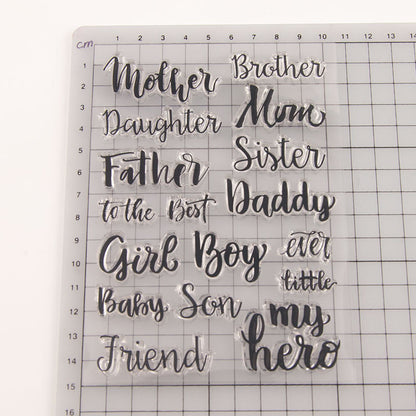 cm
1 2 3 4 5 6 7 8 9 10 11 12 13
Mother Brother
Daughter Mom
Father Sister
to the Best Daddy
Girl Boy ever
little
Baby Son my
Friend hero
1
2
3
4
5
6
7
8
9
10
11
12
13
14
15
16